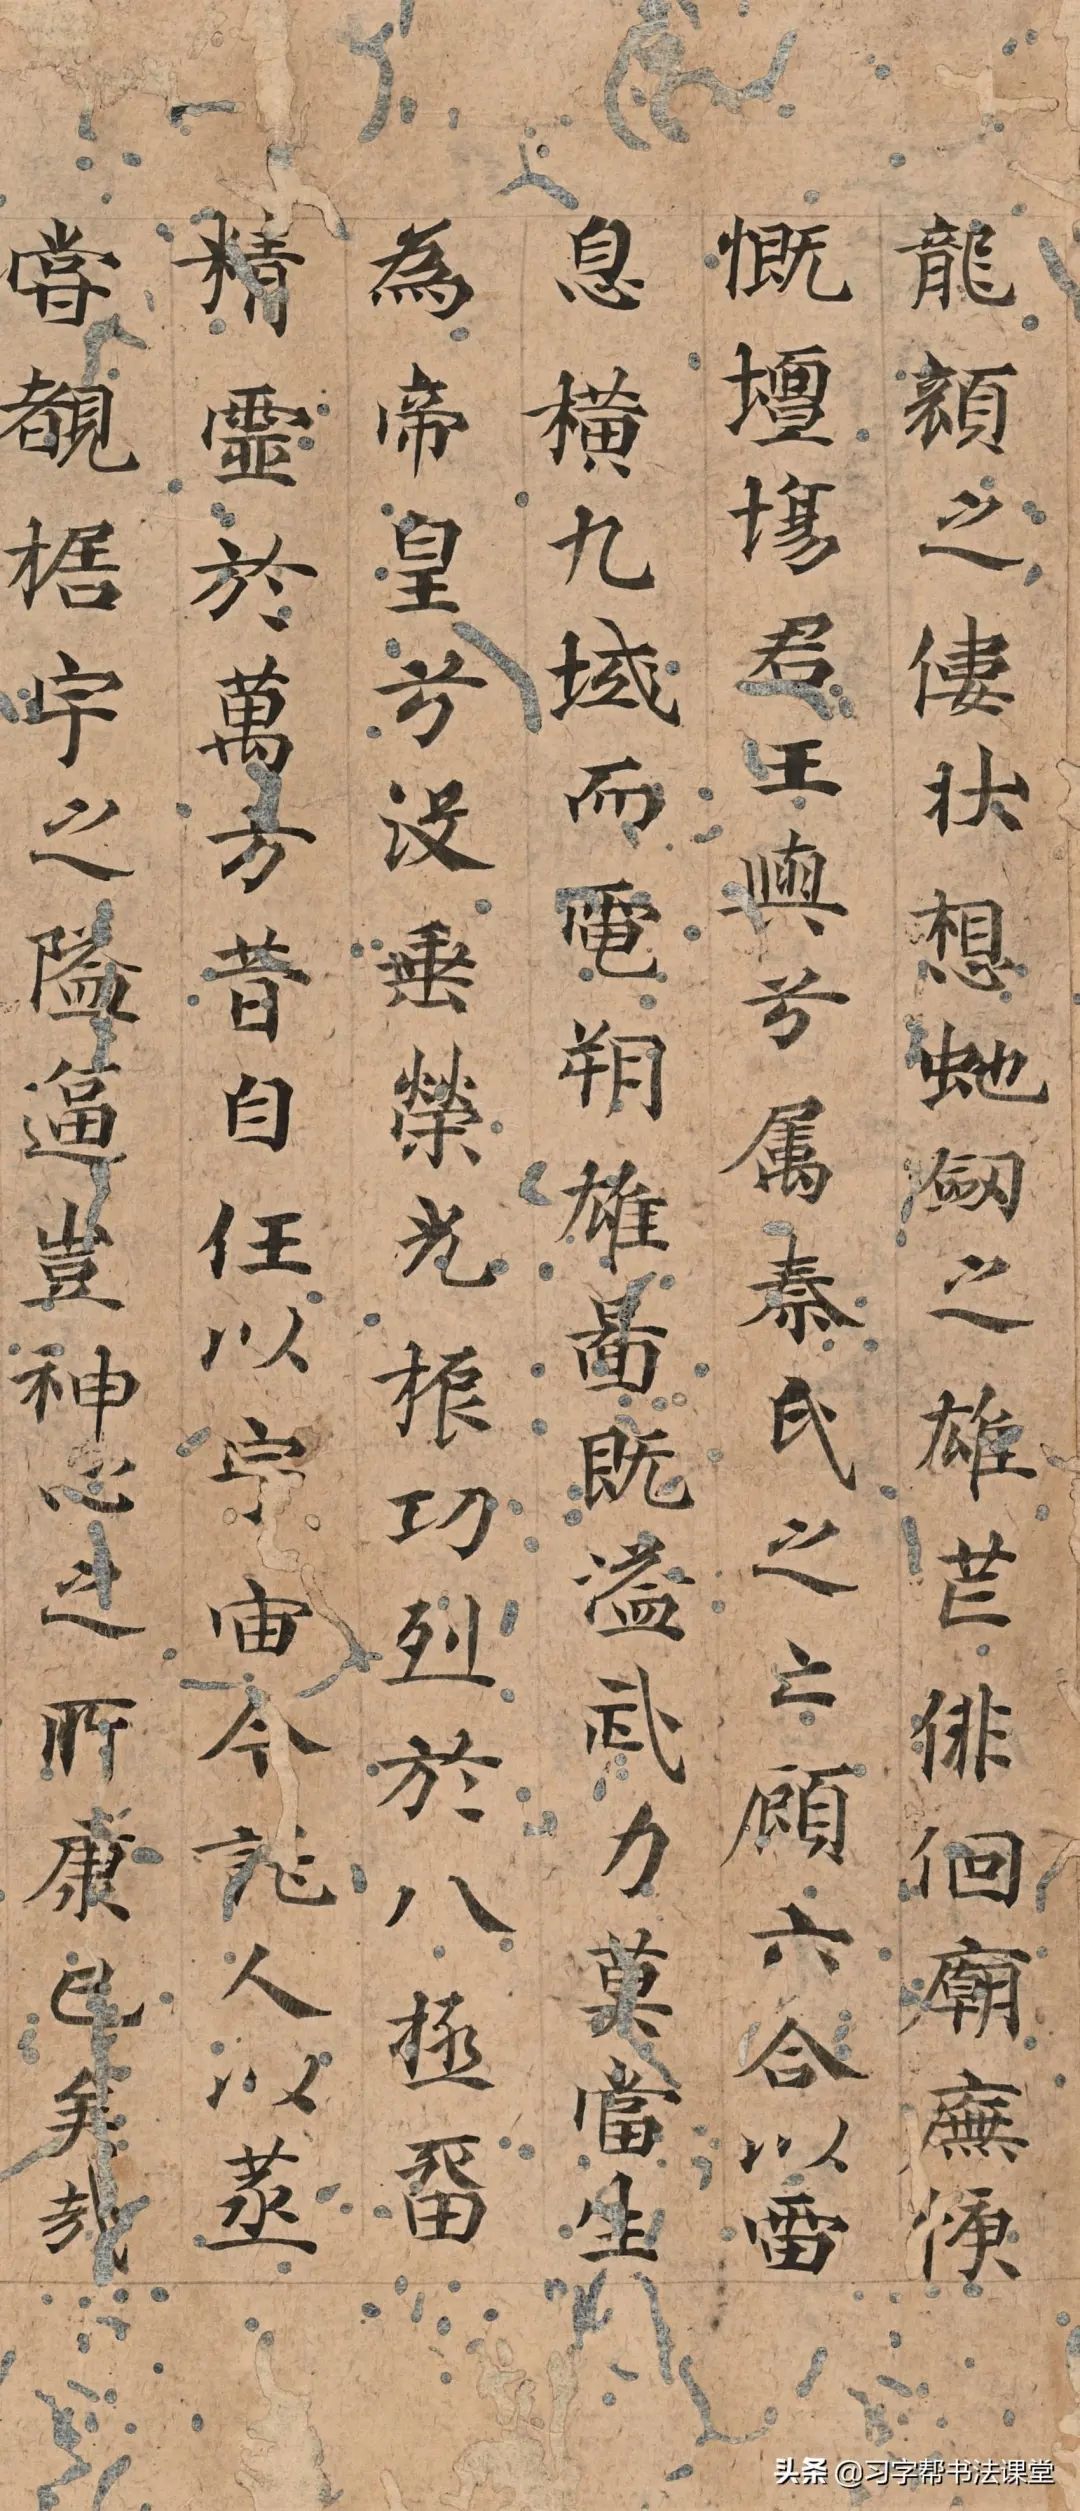 龍顏之僂狀想虵劒之雄芒俳佪廟廡慺
慨壇塲君王輿兮属秦氏之亡顧六合以雷
息橫九域而電朔雄啚既溢武力莫當生
為帝皇兮没垂榮光振功烈於八極留
精靈於萬方昔自任以宇宙今託人以蒸
嘗覩椐宇之隘逼豈神心之所康已矣哉
头条 @习字帮书法课堂